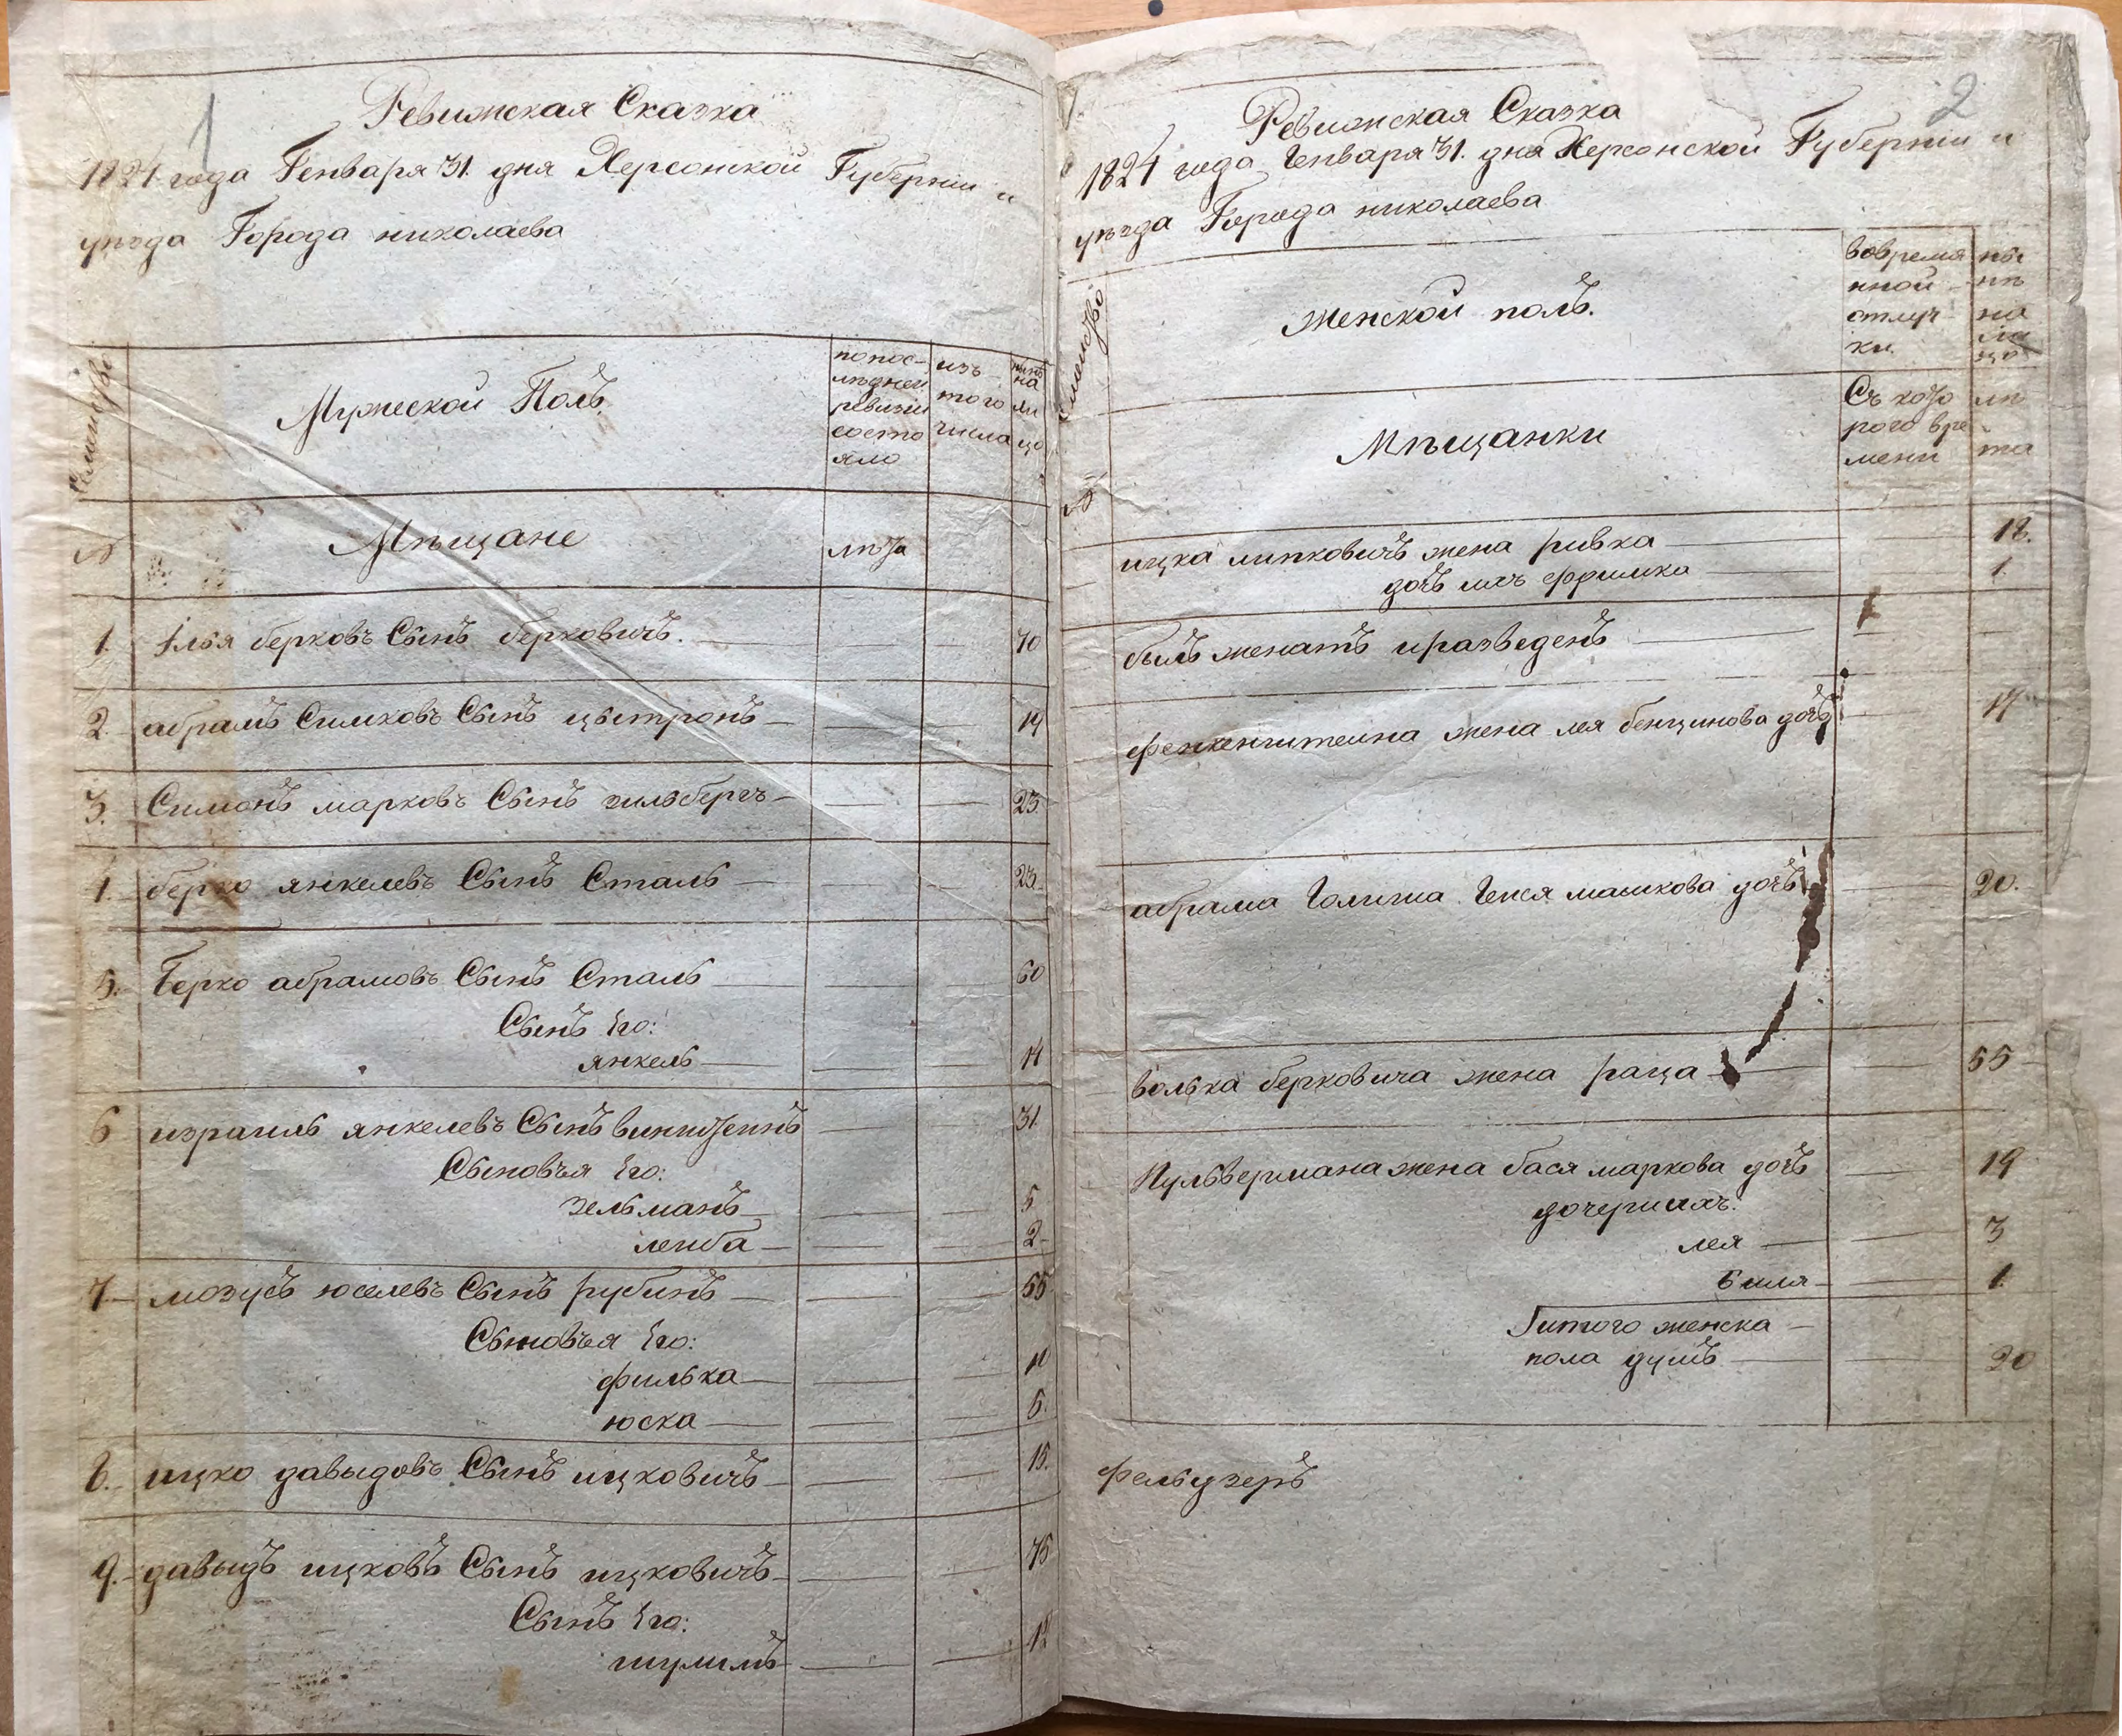 1
Ревижская Сказка
1824 года Генваря 31. дня Херсонской Губернии и
уезда Города николаева
Семейство
Мужеской Полъ
попос-
лѣдней
ревизіи
состо
яло
изъ
того
числа
нынѣ
на
ли
цо
№
Мѣщане
лѣта
1. Илья берковъ Сынъ берковичъ. 70
2. абрамъ Симковъ Сынъ цытронъ 19
3. Симонъ марковъ Сынъ зильбергъ 23
4. берко янкелевъ Сынъ Сталь 23
5. Берко абрамовъ Сынъ Сталь 60
Сынъ Его:
янкель 14
6 израиль янкелевъ Сынъ винштеинъ 31
Сыновья Его:
зельманъ 5
леиба 2
7. мозусъ юселевъ Сынъ рубинъ 55
Сыновья Его:
филька
юска
8. ицко давыдовъ Сынъ ицковичъ 15.
9. давыдъ ицковъ Сынъ ицковичъ 75
Сынъ Его:
шулимъ 12
2
Ревижская Сказка
1824 года Генваря 31. дня Херсонской Губерніи и
уѣзда Города николаева
Семейство
№
женской полъ.
вовремян
нной
отлуч
ки
ны
нѣ
на
ли
цо
Мѣщанки
Съ кото
рого вре
мени
лѣ
та
ицка липковичъ жена ривка 18.
дочь ихъ фримка 1.
былъ женатъ и разведенъ
жена лея бенцинова дочь
абрама Голиша Генся машкова дочь 20.
волька берковича жена раца 55
Пульвермана жена бася маркова дочь 19
дочери ихъ:
лея 3
биля 1.
Итого женска
пола душъ 20
фельдзеръ